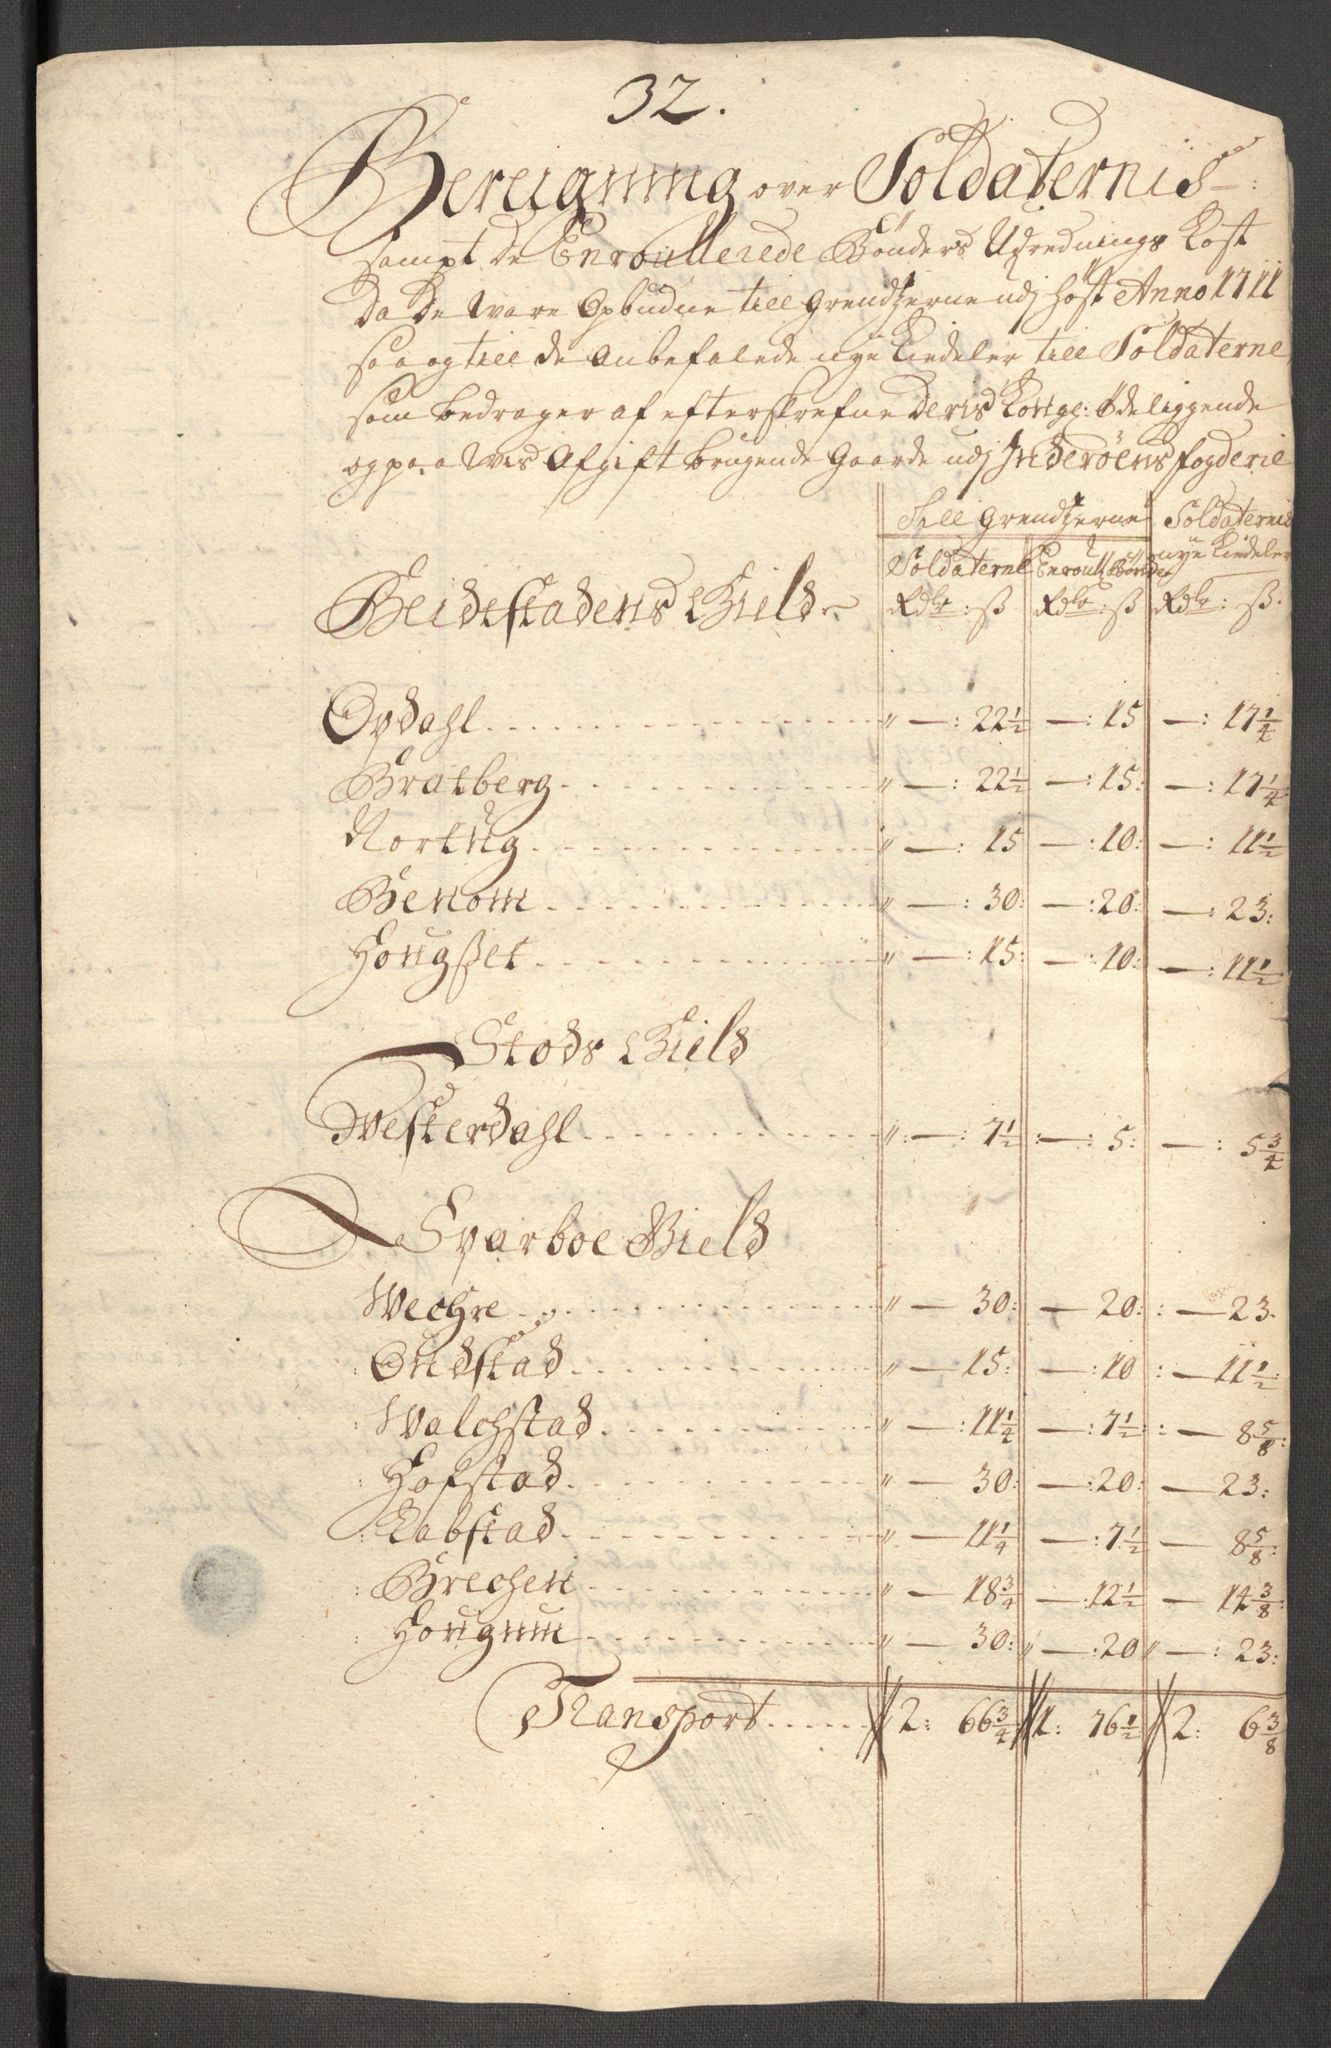 32.
Bereigning over Soldaternis
sampt de Enroullerede Bønders Udrednings Kost
da de ware Opbudne till Grendzerne udj høst Anno 1711
saa og till de Anbefalede nye Kiedeler till Soldaterne
som bedrager af efterskrefne deris Kongl: Ødeliggende
og paa wis Afgift brugende Gaarde udj Inderøens fogderie
Till Grendzerne Soldaternis
Soldaterne Enroull: Bønder nye Kiedeler
Beidstadens Gield Rdlr : ß Rdlr : ß Rdlr : ß.
Opdahl " — : 22½ — : 15 — : 17¼
Bratberg " — : 22½ — : 15 : — : 17¼
Nortug " — : 15 — : 10 : — : 11½
Benom " — : 30 : — : 20 : — : 23 :
Hougßet " — : 15 : — : 10 : — : 11½
Stods Gield
Westerdahl " : — : 7½ : — : 5 : — : 5¾
Sparboe Gield
Wechre " — 30 : — 20 : : — 23.
Ondstad " — 15 : — : 10 : — 11½
Walchstad " — : 11¼ — : 7½ : — 8⅝ :
Hofstad " — 30 : — : 20 : — 23 :
Labstad " — 11¼ — : 7½ — 8⅝ :
Brechen " — 18¾ — : 12½ — 14⅜ :
Hougnum " — 30 : " — : 20 " — : 23 :
Transport 2 : 66¾ 1 : 76½ 2 : 6⅜